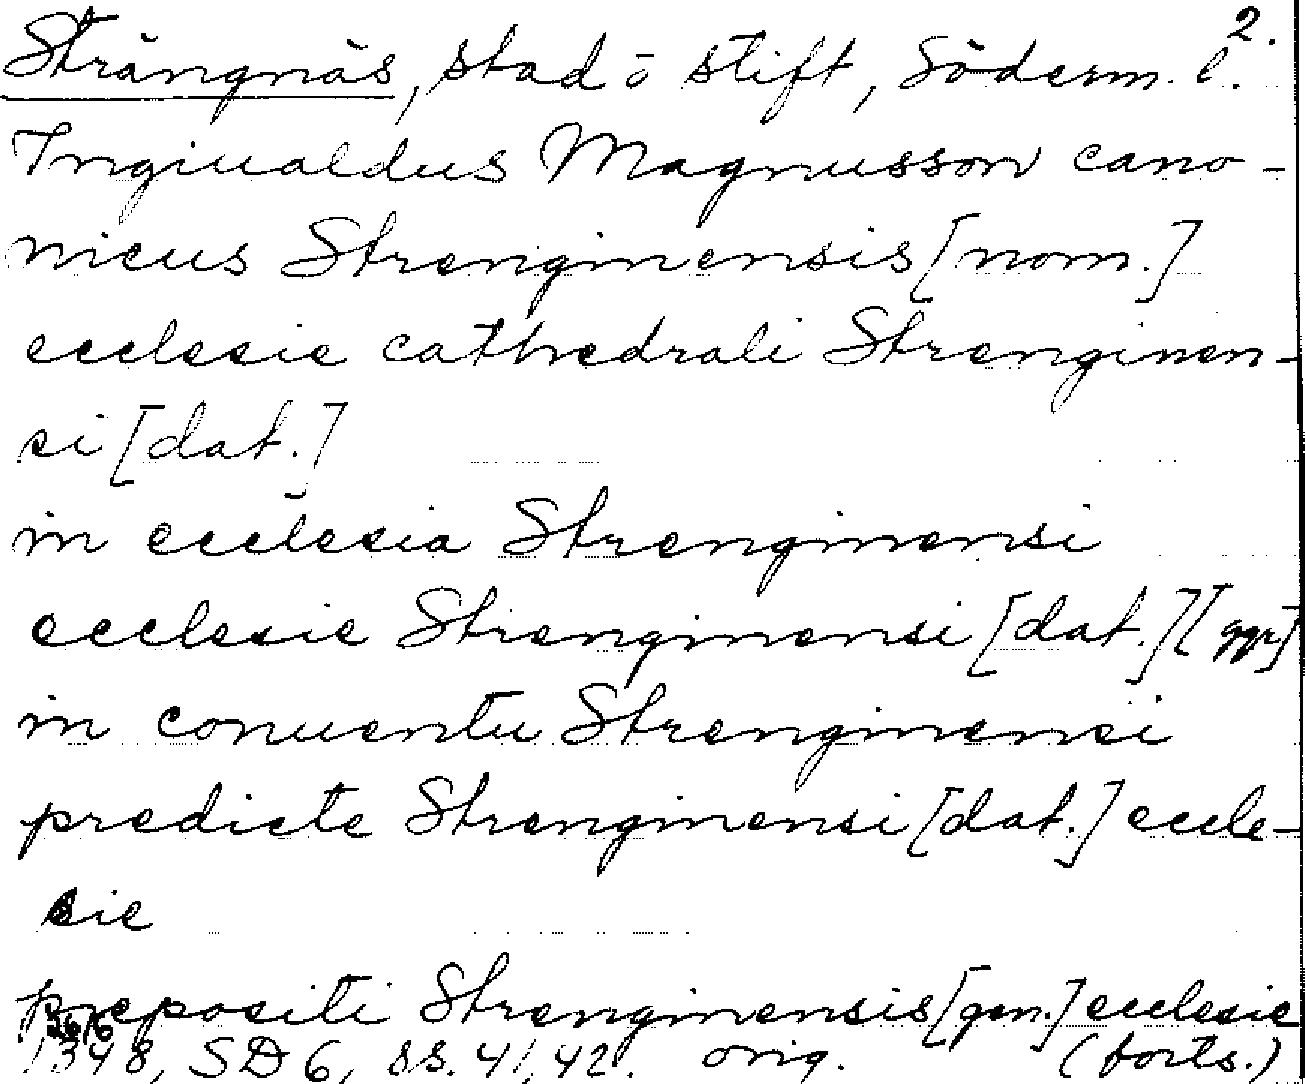 2.
Strängnäs, stad o stift, Söderm. l.
Ingiualdus Magnusson cano-
nicus Strenginensis [nom.]
ecclesie cathedrali Strenginen-
si [dat.]
in ecclesia Strenginensi
ecclesie Strenginensi [dat.] [ggr]
in conuentu Strenginensi
predicte Strenginensi [dat.] eccle-
sie
prepositi Strenginensis [gen.] ecclesie
26/6
1348, SD 6, ss. 41, 42. orig. (forts.)